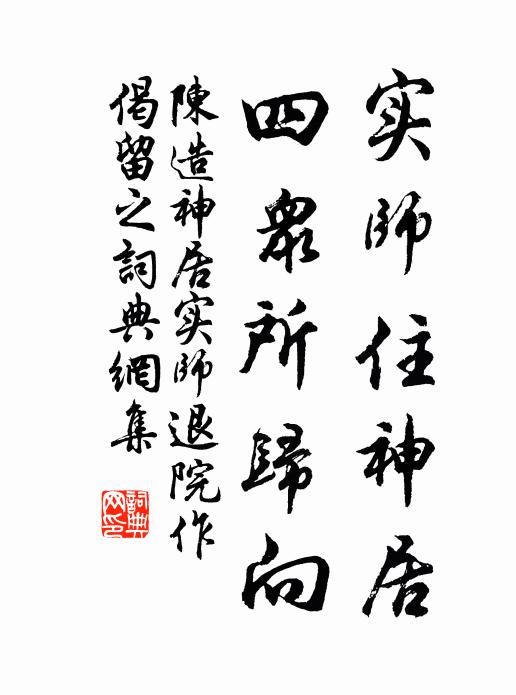 实師住神居
四衆所歸向
陳造神居实師退院作
偈留之詞典網集
詞典网印